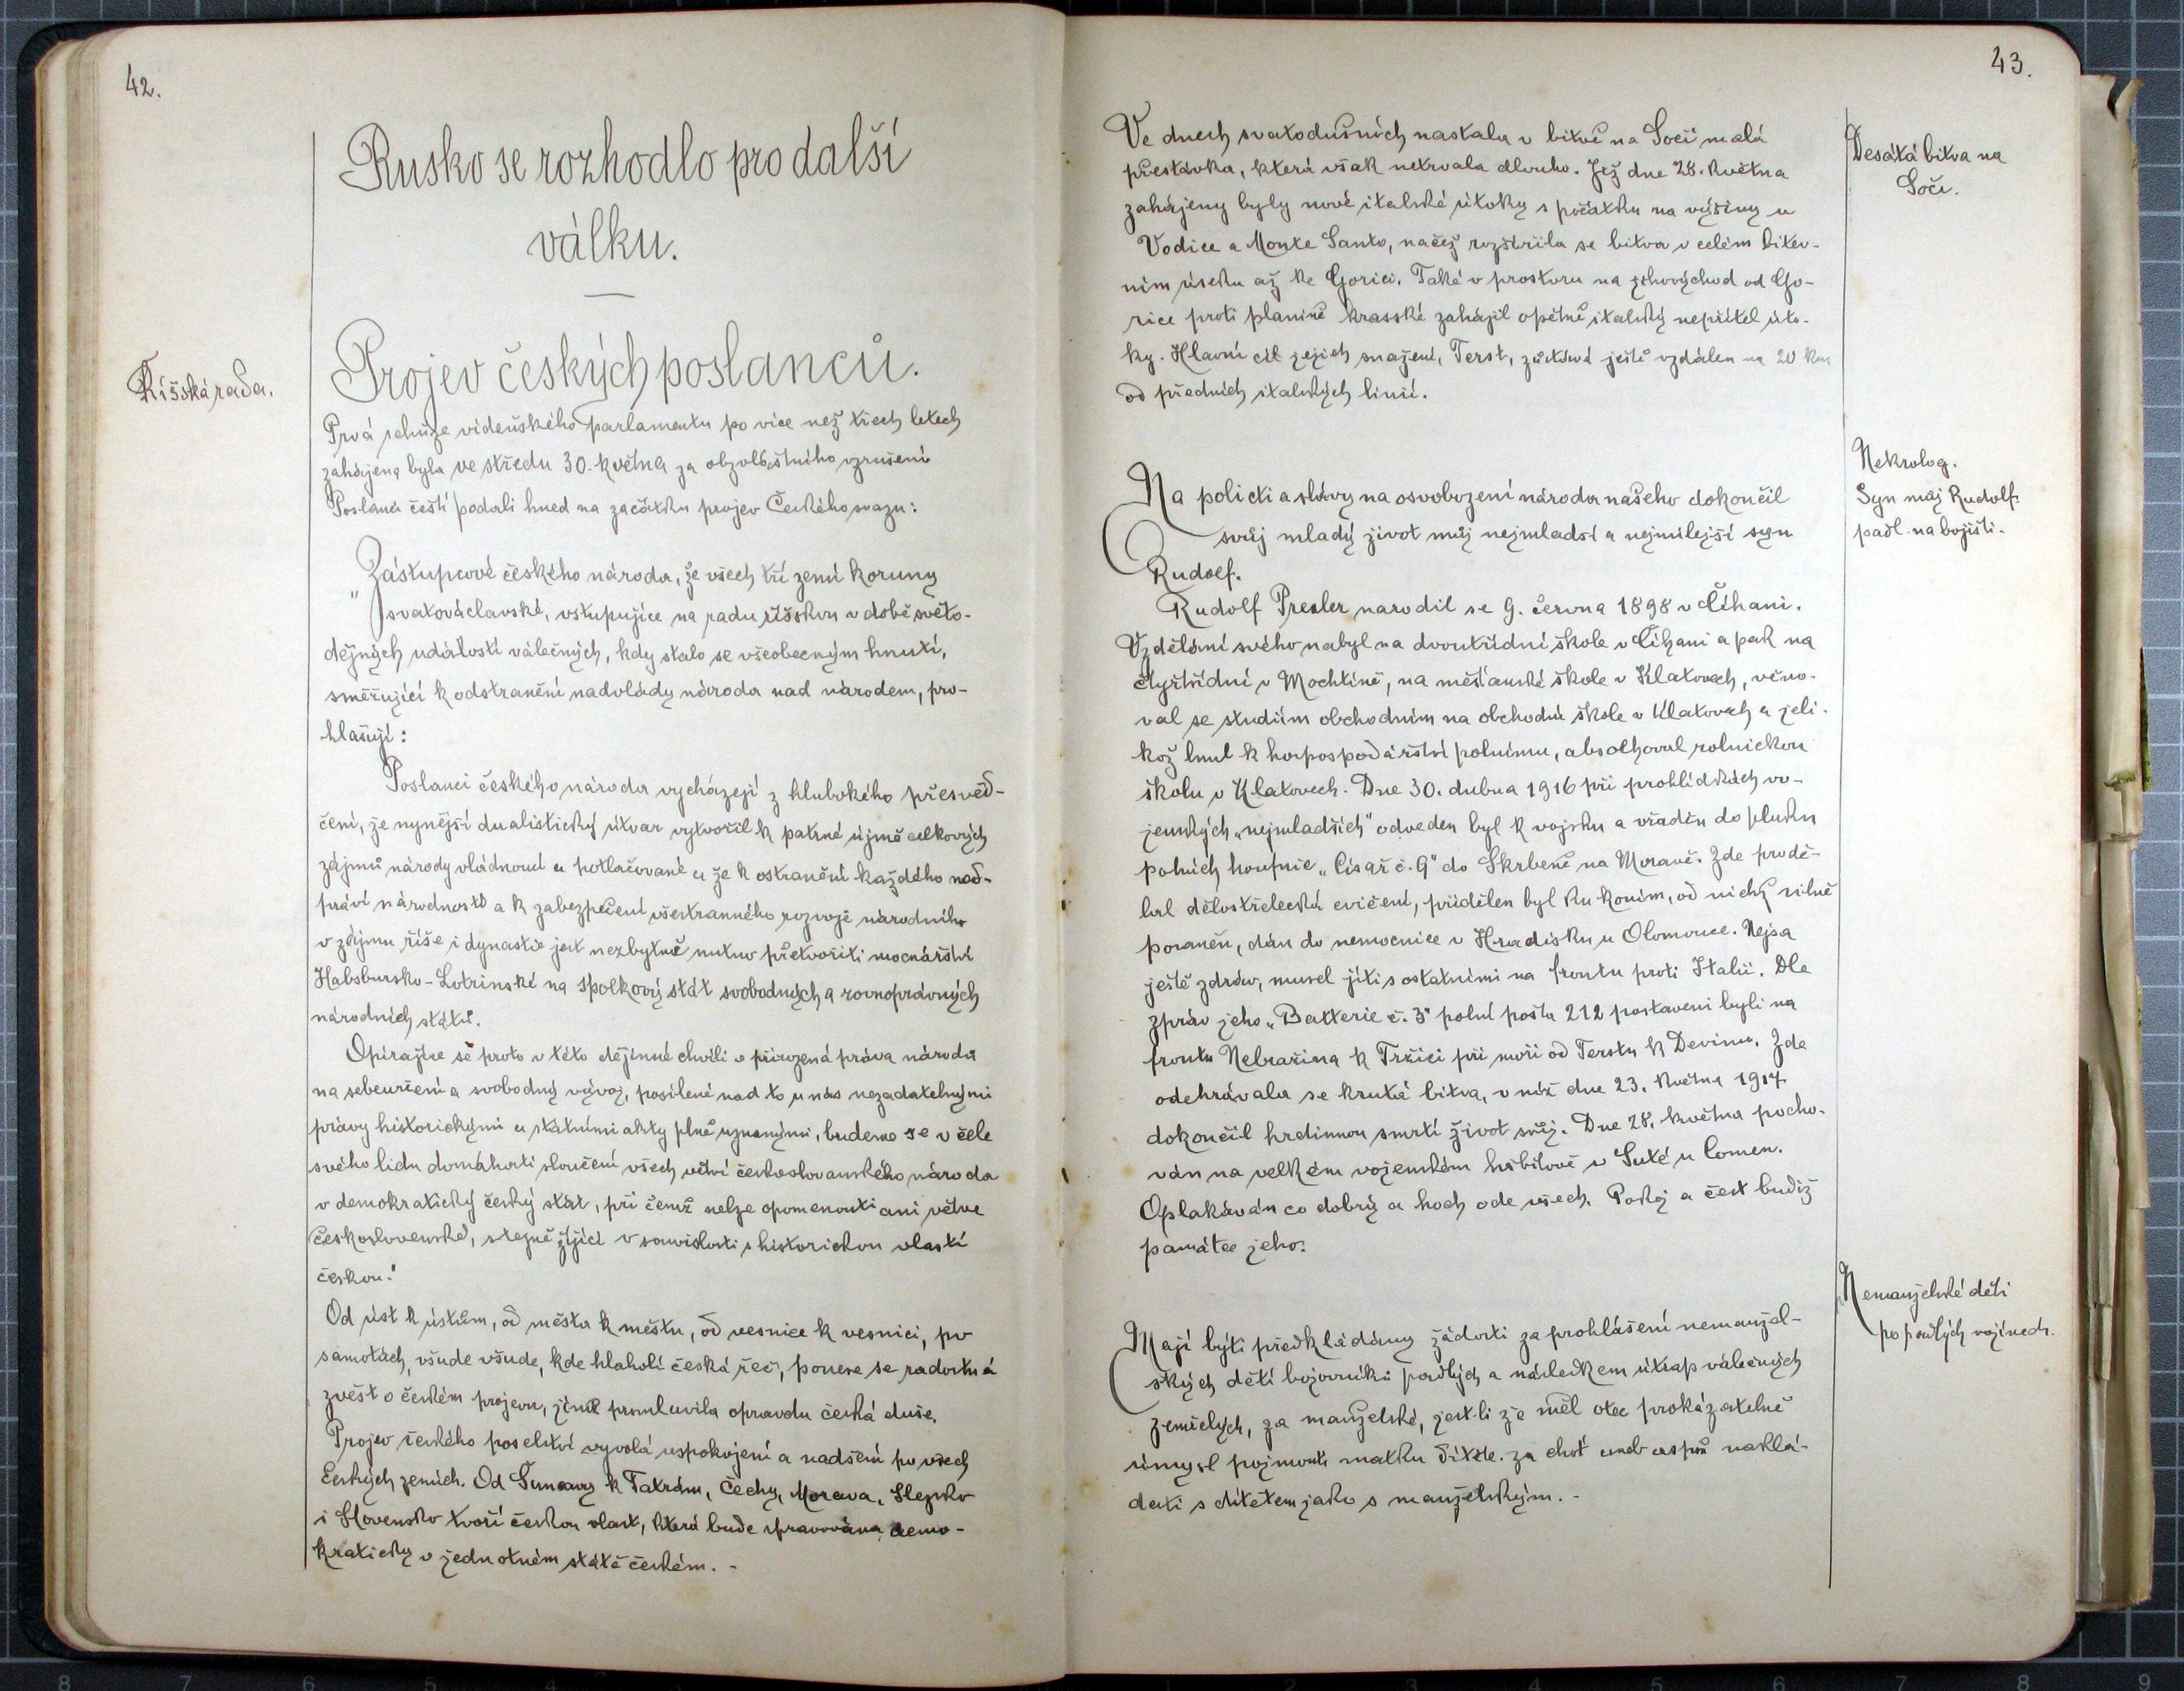 42.
Rusko se rozhodlo pro další
válku.
Říšská rada.
Projev českých poslanců.
Prvá schůze vídeňského parlamentu po více než třech letech
zahájena byla ve středu 30. května za obzvláštního vzrušení
Poslanci čeští podali hned na začátku projev Českého svazu:
„Zástupcové českého národa, že všech tří zemí koruny
svatováclavské, vstupujíce na radu říšskou v době světo-
dějných událostí válečných, kdy stalo se všeobecným hnutí,
směřující k odstranění nadvlády národa nad národem, pro-
hlašují:
Poslanci českého národa vycházejí z hlubokého přesvěd-
čení, že nynější dualistický útvar vytvořil k patrné újmě celkových
zájmů národy vládnoucí a potlačované a že k ostranění každého nad-
práví národností a k zabezpečení všestranného rozvoje národního
v zájmu říše i dynastie jest nezbytně nutno přetvořiti mocnářství
Habsbursko-Lotrinské na spolkový stát svobodných a rovnoprávných
národních států.
Opírajíce se proto v této dějinné chvíli o přirozená práva národů
na sebeurčení a svobodný vývoj, posílené nad to u nás nezadatelnými
právy historickými a státními akty plně uznanými, budeme se v čele
svého lidu domáhati sloučení všech větví českoslovanského národa
v demokratický český stát, při čemž nelze opomenouti ani větve
československé, stejně žijící v souvislosti s historickou vlastí
českou.
Od úst k ústům, od města k městu, od vesnice k vesnici, po
samotách, všude všude, kde hlaholí česká řeč, ponese se radostná
zvěst o českém projevu, jímž promluvila opravdu česká duše.
Projev českého poselství vyvolá uspokojení a nadšení po všech
českých zemích. Od Šumavy k Tatrám, Čechy, Morava, Slezsko
i Slovensko tvoří českou vlast, která bude spravována demo-
kraticky v jednotném státě českém. -
43.
Ve dnech svatodušních nastala v bitvě na Soči malá
přestávka, která však netrvala dlouho. Již dne 28. května
zahájeny byly nové italské útoky s počátku na výšiny u
Vodice a Monte Santo, načež rozšířila se bitva v celém bitev-
ním úseku až ke Gorici. Také v prostoru na jihovýchod od Go-
rice proti planině krasské zahájil opětně italský nepřítel úto-
ky. Hlavní cíl jejich snažení, Terst, zůstává ještě vzdálen na 20 km
od předních italských linií.
Desátá bitva na
Soči.
Na poli cti a slávy na osvobození národa našeho dokončil
svůj mladý život můj nejmladší a nejmilejší syn
Rudolf.
Nekrolog.
Syn můj Rudolf
padl na bojišti.
Rudolf Presler narodil se 9. června 1898 v Číhani.
Vzdělání svého nabyl na dvoutřídní škole v Číhani a pak na
čtyřtřídní v Mochtíně, na měšťanské škole v Klatovech, věno-
val se studiím obchodním na obchodní škole v Klatovech a jeli-
kož lnul k hospospodářství polnímu, absolhoval rolnickou
školu v Klatovech. Dne 30. dubna 1916 při prohlídkách vo-
jenských „nejmladších" odveden byl k vojsku a vřaděn do pluku
polních houfnic „Císař č. 9" do Skrbeně na Moravě. Zde prodě-
lal dělostřelecká cvičení, přidělen byl ku koním, od nichž silně
poraněn, dán do nemocnice v Hradisku u Olomouce. Nejsa
ještě zdráv, musel jíti s ostatními na frontu proti Italii. Dle
zpráv jeho „Batterie č. 3" polní pošta 212 postaveni byli na
frontu Nebražina k Tržici při moři od Terstu k Devinu. Zde
odehrávala se krutá bitva, v níž dne 23. května 1917
dokončil hrdinnou smrtí život svůj. Dne 28. května pocho-
ván na velkém vojenském hřbitově v Suté u Comen.
Oplakáván co dobrý a hoch ode všech. Pokoj a čest budiž
památce jeho.
Mají býti předkládány žádosti za prohlášení nemanžel-
ských dětí bojovníků padlých a následkem útrap válečných
zemřelých, za manželské, jest-li že měl otec prokázatelně
úmysl pojmouti matku dítěte za choť aneb aspoň naklá-
dati s dítětem jako s manželským. -
Nemanželské děti
po padlých vojínech.